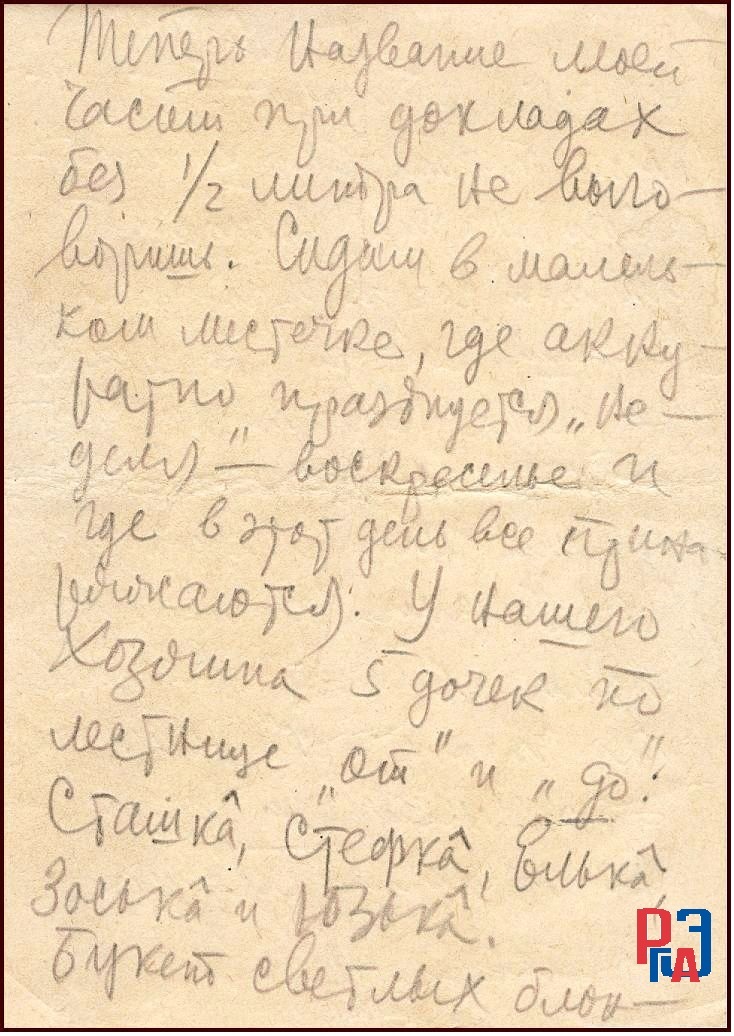 Теперь название моей
части при докладах
без 1/2 литра не выго-
воришь. Сидим в малень-
ком местечке, где акку-
ратно празднуется „не-
деля" – воскресенье и
где в этот день все прина-
ряжаются. У нашего
хозяина 5 дочек по
лестнице „от" и „до".
Сташка̂, Стефка̂, Элька̂,
Зоська̂ и Юзька̂.
Букет светлых блон-
РГАЭ